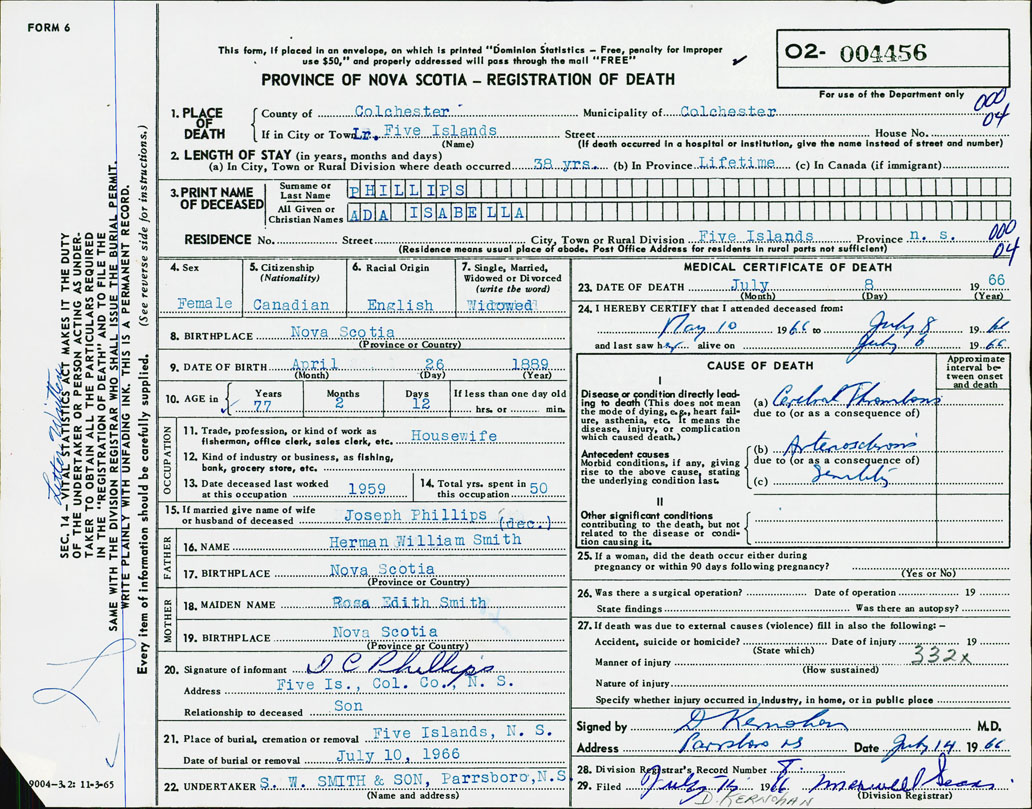 FORM 6
This form, if placed in an envelope, on which is printed "Dominion Statistics – Free, penalty for improper
use $50," and properly addressed will pass through the mail "FREE"
PROVINCE OF NOVA SCOTIA – REGISTRATION OF DEATH
02- 004456
For use of the Department only
000
04
1. PLACE OF DEATH
County of Colchester Municipality of Colchester
If in City or Town Lr. Five Islands Street House No.
(Name) (If death occurred in a hospital or institution, give the name instead of street and number)
2. LENGTH OF STAY (in years, months and days)
(a) In City, Town or Rural Division where death occurred 38 yrs. (b) In Province Lifetime (c) In Canada (if immigrant)
3. PRINT NAME OF DECEASED
Surname or Last Name PHILLIPS
All Given or Christian Names ADA ISABELLA
RESIDENCE No. Street City, Town or Rural Division Five Islands Province n. s.
(Residence means usual place of abode. Post Office Address for residents in rural parts not sufficient)
000
04
4. Sex
Female
5. Citizenship
(Nationality)
Canadian
6. Racial Origin
English
7. Single, Married,
Widowed or Divorced
(write the word)
Widowed
8. BIRTHPLACE Nova Scotia
(Province or Country)
9. DATE OF BIRTH April 26 1889
(Month) (Day) (Year)
10. AGE in Years Months Days If less than one day old
77 2 12 hrs. or min.
OCCUPATION
11. Trade, profession, or kind of work as
fisherman, office clerk, sales clerk, etc. Housewife
12. Kind of industry or business, as fishing,
bank, grocery store, etc.
13. Date deceased last worked
at this occupation 1959
14. Total yrs. spent in
this occupation 50
15. If married give name of wife
or husband of deceased Joseph Phillips (dec.)
FATHER
16. NAME Herman William Smith
17. BIRTHPLACE Nova Scotia
(Province or Country)
MOTHER
18. MAIDEN NAME Rosa Edith Smith
19. BIRTHPLACE Nova Scotia
(Province or Country)
20. Signature of informant D C Phillips
Address Five Is., Col. Co., N. S.
Relationship to deceased Son
21. Place of burial, cremation or removal Five Islands, N. S.
Date of burial or removal July 10, 1966
22. UNDERTAKER S. W. SMITH & SON, Parrsboro, N.S
(Name and address)
MEDICAL CERTIFICATE OF DEATH
23. DATE OF DEATH July 8 1966
(Month) (Day) (Year)
24. I HEREBY CERTIFY that I attended deceased from:
May 10 1966 to July 8 1966
and last saw her alive on July 6 1966
CAUSE OF DEATH
Approximate
interval be-
tween onset
and death
I
Disease or condition directly lead-
ing to death (This does not mean
the mode of dying, e.g., heart fail-
ure, asthenia, etc. It means the
disease, injury, or complication
which caused death.)
(a) Cerebral Thrombosis
due to (or as a consequence of)
Antecedent causes
Morbid conditions, if any, giving
rise to the above cause, stating
the underlying condition last.
(b) Arteriosclerosis
due to (or as a consequence of)
(c) Senility
II
Other significant conditions
contributing to the death, but not
related to the disease or condi-
tion causing it.
25. If a woman, did the death occur either during
pregnancy or within 90 days following pregnancy?
(Yes or No)
26. Was there a surgical operation? Date of operation 19
State findings Was there an autopsy?
27. If death was due to external causes (violence) fill in also the following: –
Accident, suicide or homicide? Date of injury 19
(State which)
332x
Manner of injury
(How sustained)
Nature of injury
Specify whether injury occurred in industry, in home, or in public place
Signed by D Kernohan M.D.
Address Parrsboro NS Date July 14 1966
28. Division Registrar's Record Number 8
29. Filed July 1966 Maxwell
(Division Registrar)
D. KERNOHAN
Letter Written
SEC. 14 – VITAL STATISTICS ACT MAKES IT THE DUTY
OF THE UNDERTAKER OR PERSON ACTING AS UNDER-
TAKER TO OBTAIN ALL THE PARTICULARS REQUIRED
IN THE "REGISTRATION OF DEATH" AND TO FILE THE
SAME WITH THE DIVISION REGISTRAR WHO SHALL ISSUE THE BURIAL PERMIT.
WRITE PLAINLY WITH UNFADING INK. THIS IS A PERMANENT RECORD.
Every item of information should be carefully supplied. (See reverse side for instructions.)
9004–3.2: 11-3-65